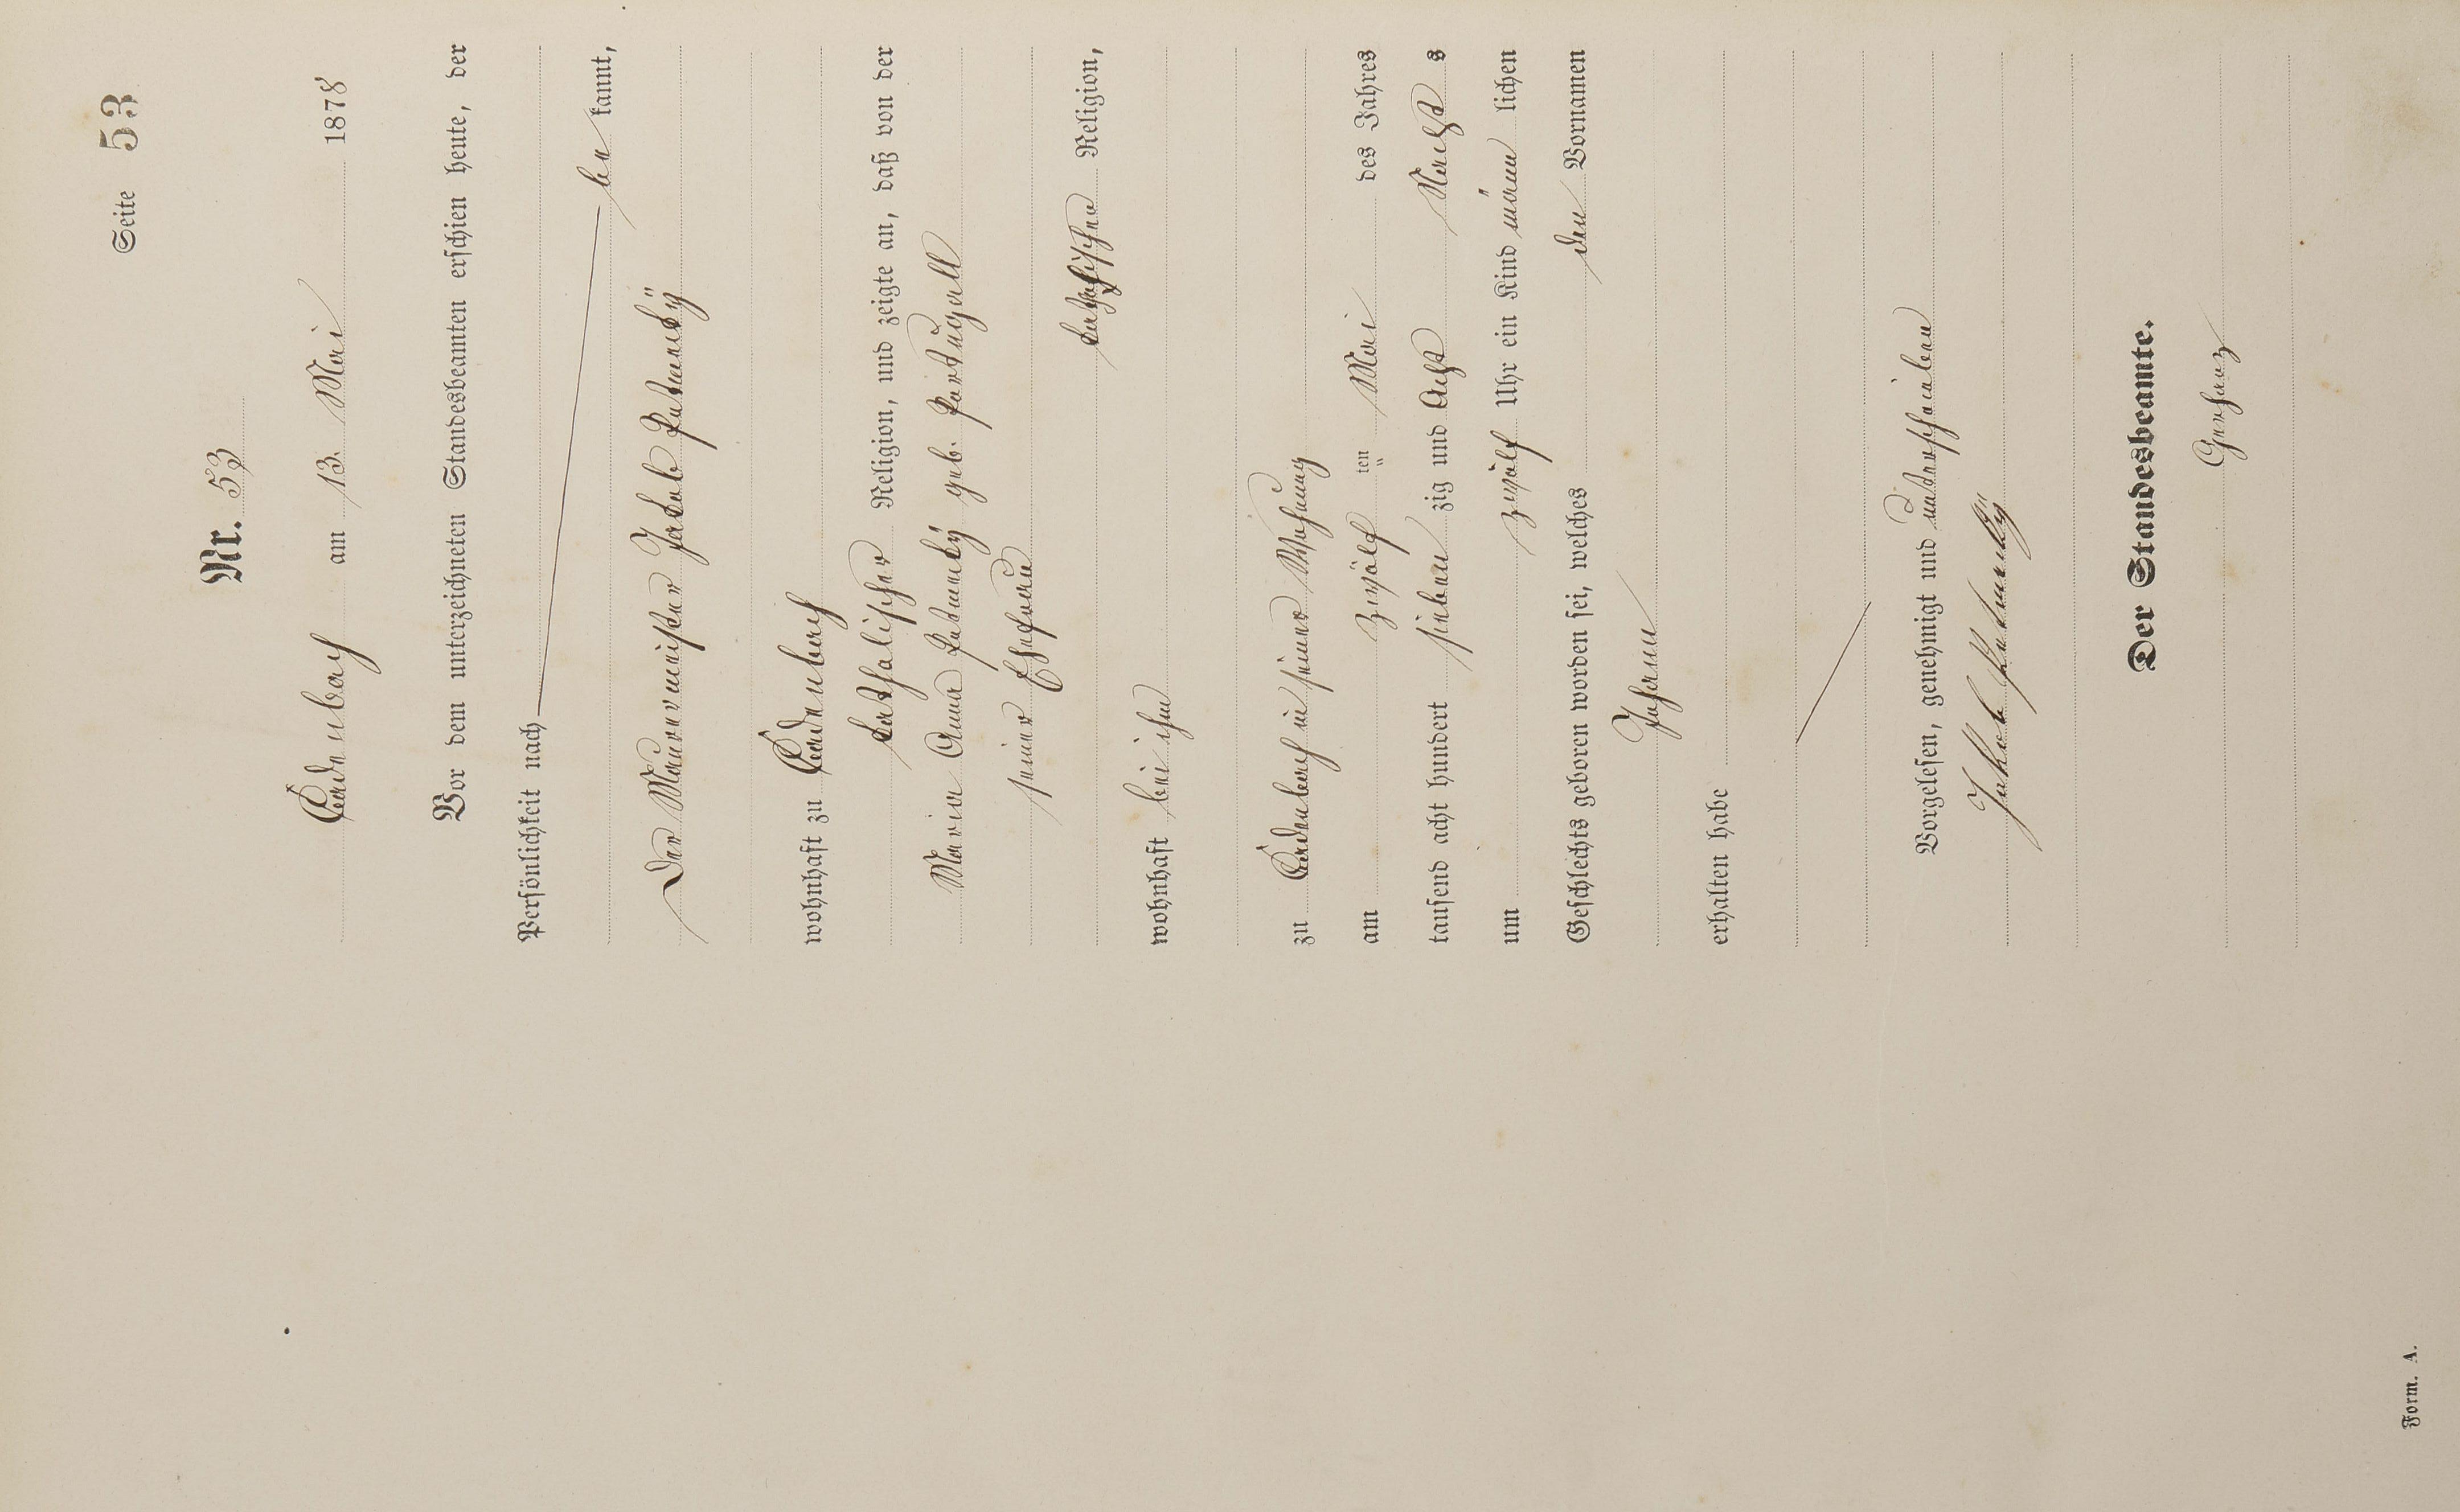 Seite 53
Nr. 53
Cadenbach am 13. Mai 1878
Vor dem unterzeichneten Standesbeamten erschien heute, der
Persönlichkeit nach
be kannt,
Der Maurermeister Jakob
wohnhaft zu Cadenbach
katholischer Religion, und zeigte an, daß von der
Maria Anna geb. Portugall
seiner Ehefrau
katholischer Religion,
wohnhaft bei ihm
zu Cadenbach in seiner Wohnung
am zwölf ten Mai des Jahres
tausend acht hundert sieben zig und Acht s
um zwölf Uhr ein Kind männ lichen
Geschlechts geboren worden sei, welches den Vornamen
Johann
erhalten habe
Vorgelesen, genehmigt und unterschrieben
Jakob
Der Standesbeamte.
Form. A.